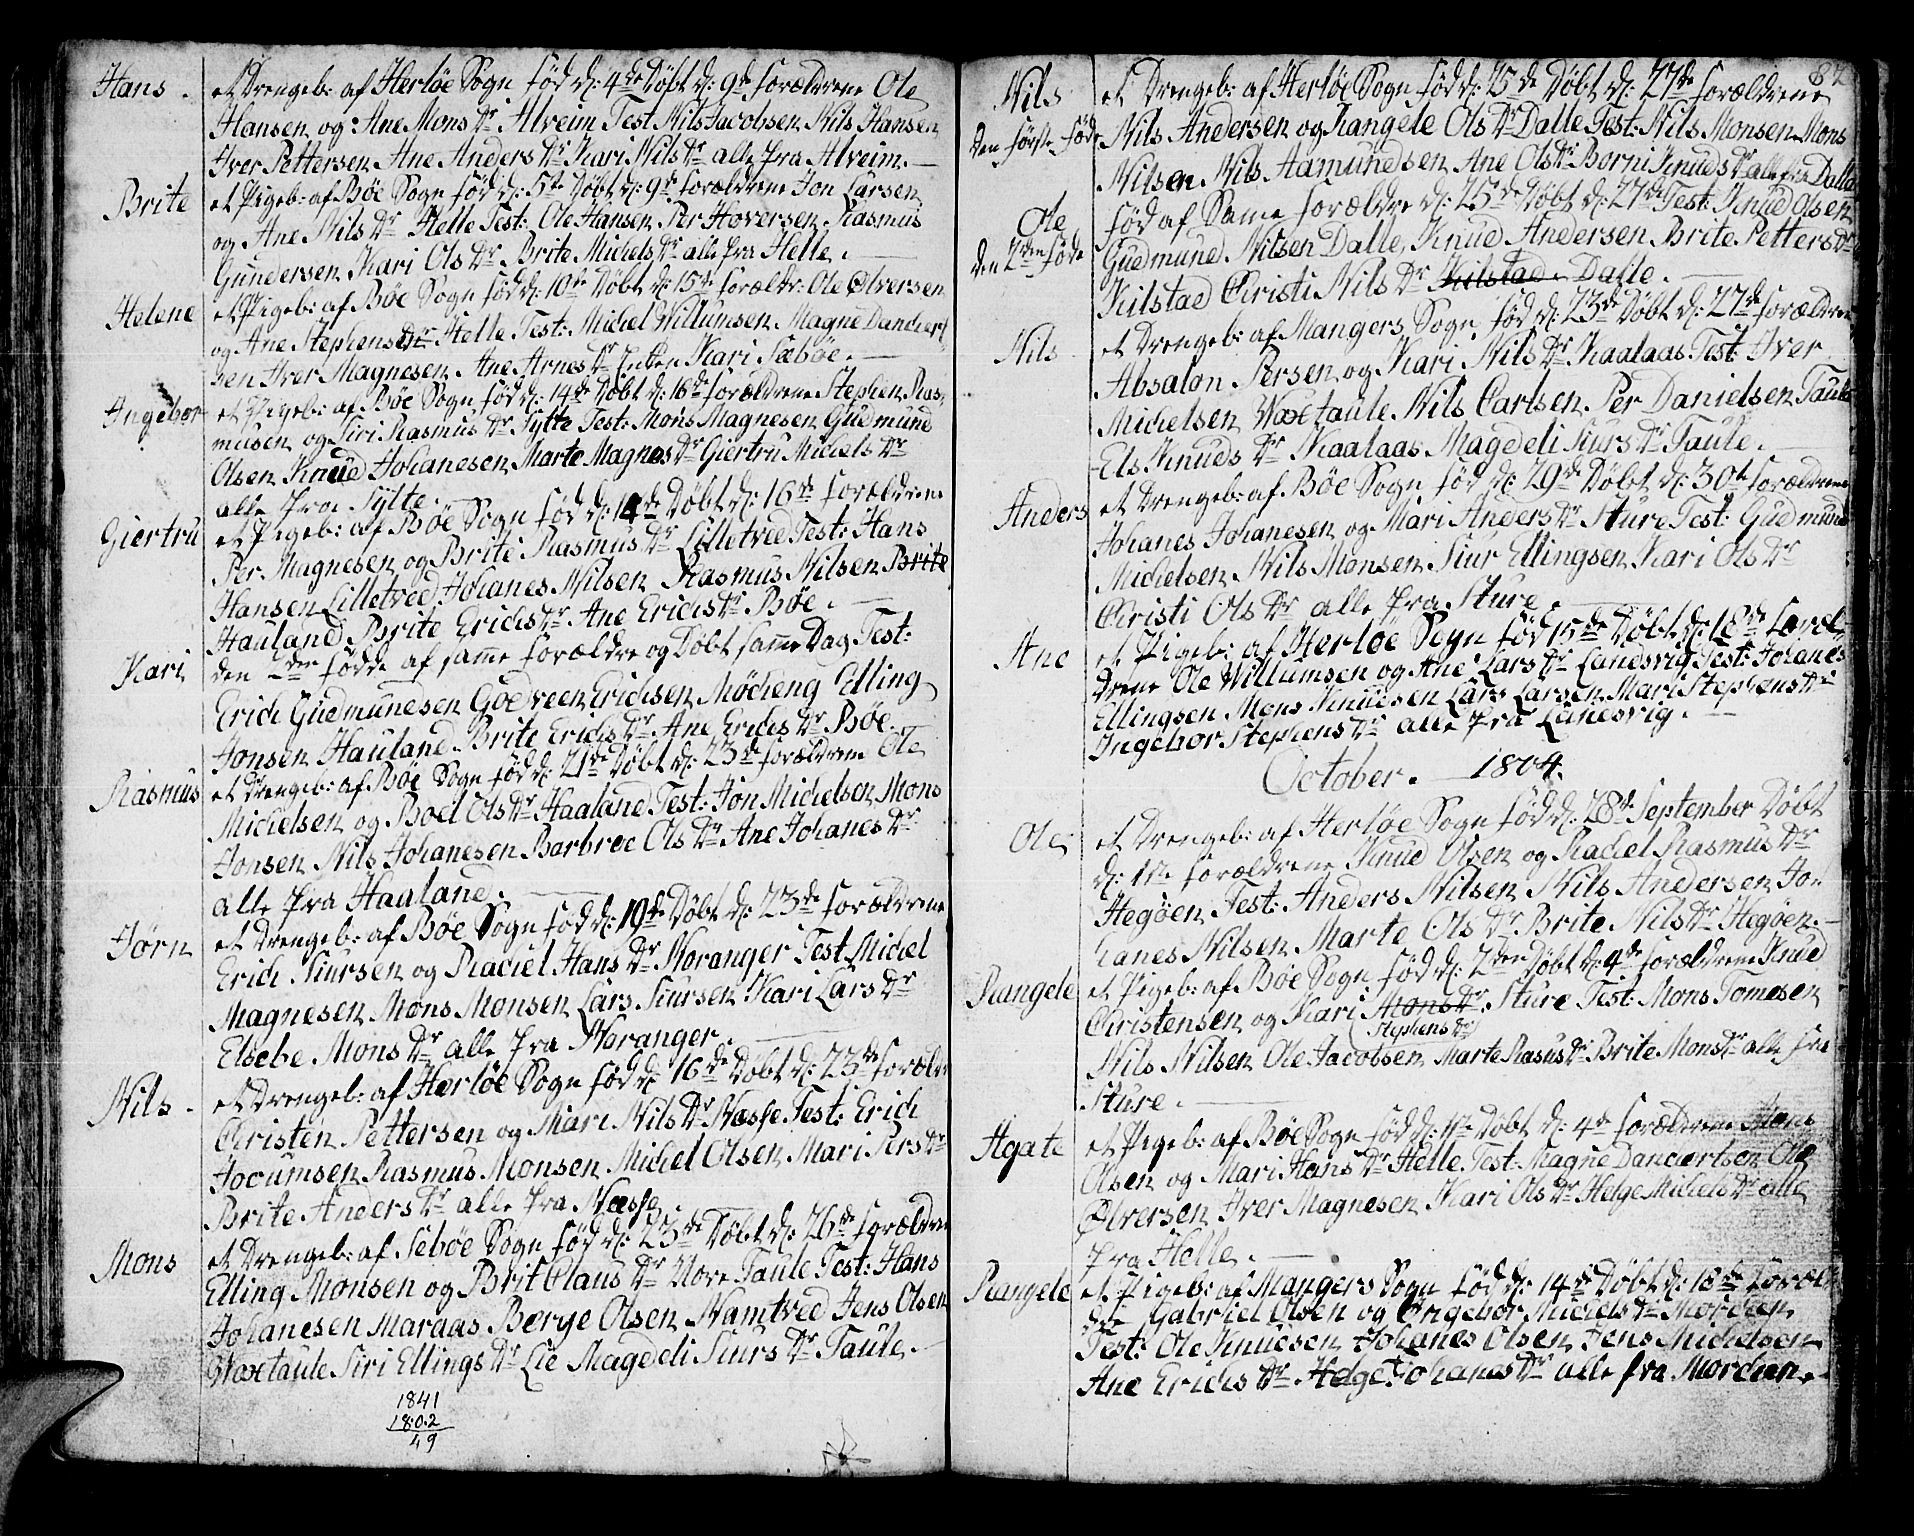 Hans. et Drengeb: af Herlöe Sogn föd d: 4de Döbt d: 9de forældrene Ole
Hansen og: Ane Mons Dr Alveim Test Nils Jacobsen Nils Hansen
Iver Pettersen Ane Anders Dr Kari Nils Dr alle fra Alveim.
Brite et Pigeb: af Böe Sogn föd d: 5te Döbt d: 9de forældrene Jon Larsen
og Ane Nils Dr Helle Test: Ole Hansen Per Hoversen Rasmus
Gundersen Kari Ols Dr Brite Michels Dr alle fra Helle.
Helene et Pigeb: af Böe Sogn föd d: 10de Döbt d: 15de forældr: Ole Ølversen
og Ane Stephens Dr Helle Test: Michel Willumsen Magne Danckert
sen Iver Magnesen Ane Arnes Dr Kari Sæbøe.
Ingebor et Pigeb: af Böe Sogn föd d: 14de Döbt d: 16de forældrene Stephen Ras-
musen og Siri Rasmus Dr Sylte Test: Mons Magnesen Gudmund
Olsen Knud Johanesen Marte Magnes Dr Giertru Michels Dr
alle fra Sylte.
Giertru et Pigeb: af Böe Sogn föd d: 14de Döbt d: 16de forældrene
Per Magnesen og Brite Rasmus Dr Lilletved Test: Hans
Hansen Lilletved Johanes Nilsen Rasmus Nilsen Brite
Hauland Brite Erichs Dr Ane Erichs Dr Böe.
Kari den 2den födde af samme forældre og Döbt samme Dag Test:
Erich Gudmunesen Godveen Erichsen Möcheng Elling
Jonsen Hauland Brite Erichs Dr Ane Erichs Dr Böe.
Rasmus et drengeb: af Böe Sogn föd d: 21de Döbt d: 23de forældrene Ole
Michelsen og Boel Ols Dr Haaland Test: Jon Michelsen Mons
Jonsen Nils Johanesen Barbroe Ols Dr Ane Johanes Dr
alle fra Haaland.
Jörn et Drengeb: af Böe Sogn föd d: 19de Döbt d: 23de forældrene
Erich Siursen og Rachel Hans Dr Noranger Test Michel
Magnesen Mons Monsen Lars Siursen Kari Lars Dr
Elsebe Mons Dr alle fra Noranger.
Nils. et Drengeb: af Herlöe Sogn föd d: 16de Döbt d: 23de forældr
Christen Pettersen og Mari Nils Dr Næsse Test: Erich
Jocumsen Rasmus Monsen Michel Olsen Mari Pers Dr
Brite Anders Dr alle fra Næsse
Mons et Drengeb: af Seböe Sogn föd d: 23de Döbt d: 26de forældrene
Elling Monsen og Brit Claus Dr Nore Taule Test: Hans
Johanesen Maraas Berge Olsen Namtved Jens Olsen
Woxtaule Siri Ellings Dr Lie Magdeli Siurs Dr Taule.
1841
1802
49
82
Nils et Drengeb: af Herlöe Sogn föd d: 25de Döbt d: 27de forældrene
den förste föde Nils Andersen og Rangele Ols Dr Dalle Test: Nils Monsen Mons
Nilsen Nils Aamundsen Ane Ols Dr Borni Knuds Dr alle fra Dalle
Ole föd af Same forældre d: 25de Döbt d: 27de Test: Knud Olsen
den 2den föde Gudmund Nilsen Dalle, Knud Andersen Brite Petters Dr
Kilstad Christi Nils Dr Kilstad Dalle.
Nils et Drengeb: af Mangers Sogn föd d: 23de Döbt d: 27de forældrene
Absalon Persen og Kari Nils Dr Kaalaas Test: Iver
Michelsen Woxtaule Nils Carlsen Per Danielsen Taule
Els Knuds Dr Kaalaas Magdeli Siurs Dr Taule.
Anders et Drengeb: af Böe Sogn föd d: 29de Döbt d: 30te forældrene
Johanes Johanesen og Mari Anders Dr Sture Test: Gudmund
Michelsen Nils Monsen Siur Ellingsen Kari Ols Dr
Christi Ols Dr alle fra Sture.
Ane et Pigeb: af Herlöe Sogn föd 15de Döbt d: 18de foræl-
drene Ole Willumsen og Ane Lars Dr Landsvig Test: Johanes
Ellingsen Mons Knudsen Lars Larsen Mari Stephens Dr
Ingebor Stephens Dr alle fra Landsvig.
October. 1804.
Ole et Drengeb: af Herlöe Sogn föd d: 28de September Döbt
d: 1ste forældrene Knud Olsen og Rachel Rasmus Dr
Hegöen Test: Anders Nilsen Nils Andersen Jo-
hanes Nilsen Marte Ols Dr Brite Nils Dr Hegöen.
Rangele et Pigeb: af Böe Sogn föd d: 2den Döbt d: 4de forældrene Knud
Christensen og Kari Mons Dr Sture Test: Mons Tomesen
Stephens Dr
Nils Nilsen Ole Jacobsen Marte Rasus Dr Brite Mons Dr alle fra
Sture.
Agate et Pigeb: af Böe Sogn föd d: 1ste Döbt d: 4de forældrene Mons
Olsen og Mari Hans Dr Helle Test: Magne Danckertsen Ole
Ølversen Iver Magnesen Kari Ols Dr Helge Michels Dr alle
fra Helle.
Rangele et Pigeb: af Mangers Sogn föd d: 14de Döbt d: 18de foræl
dre Gabriel Olsen og Ingebor Michels Dr Mordden
Test: Ole Knudsen Johanes Olsen Jens Michelsen
Ane Erichs Dr Helge Johanes Dr alle fra Mordden.